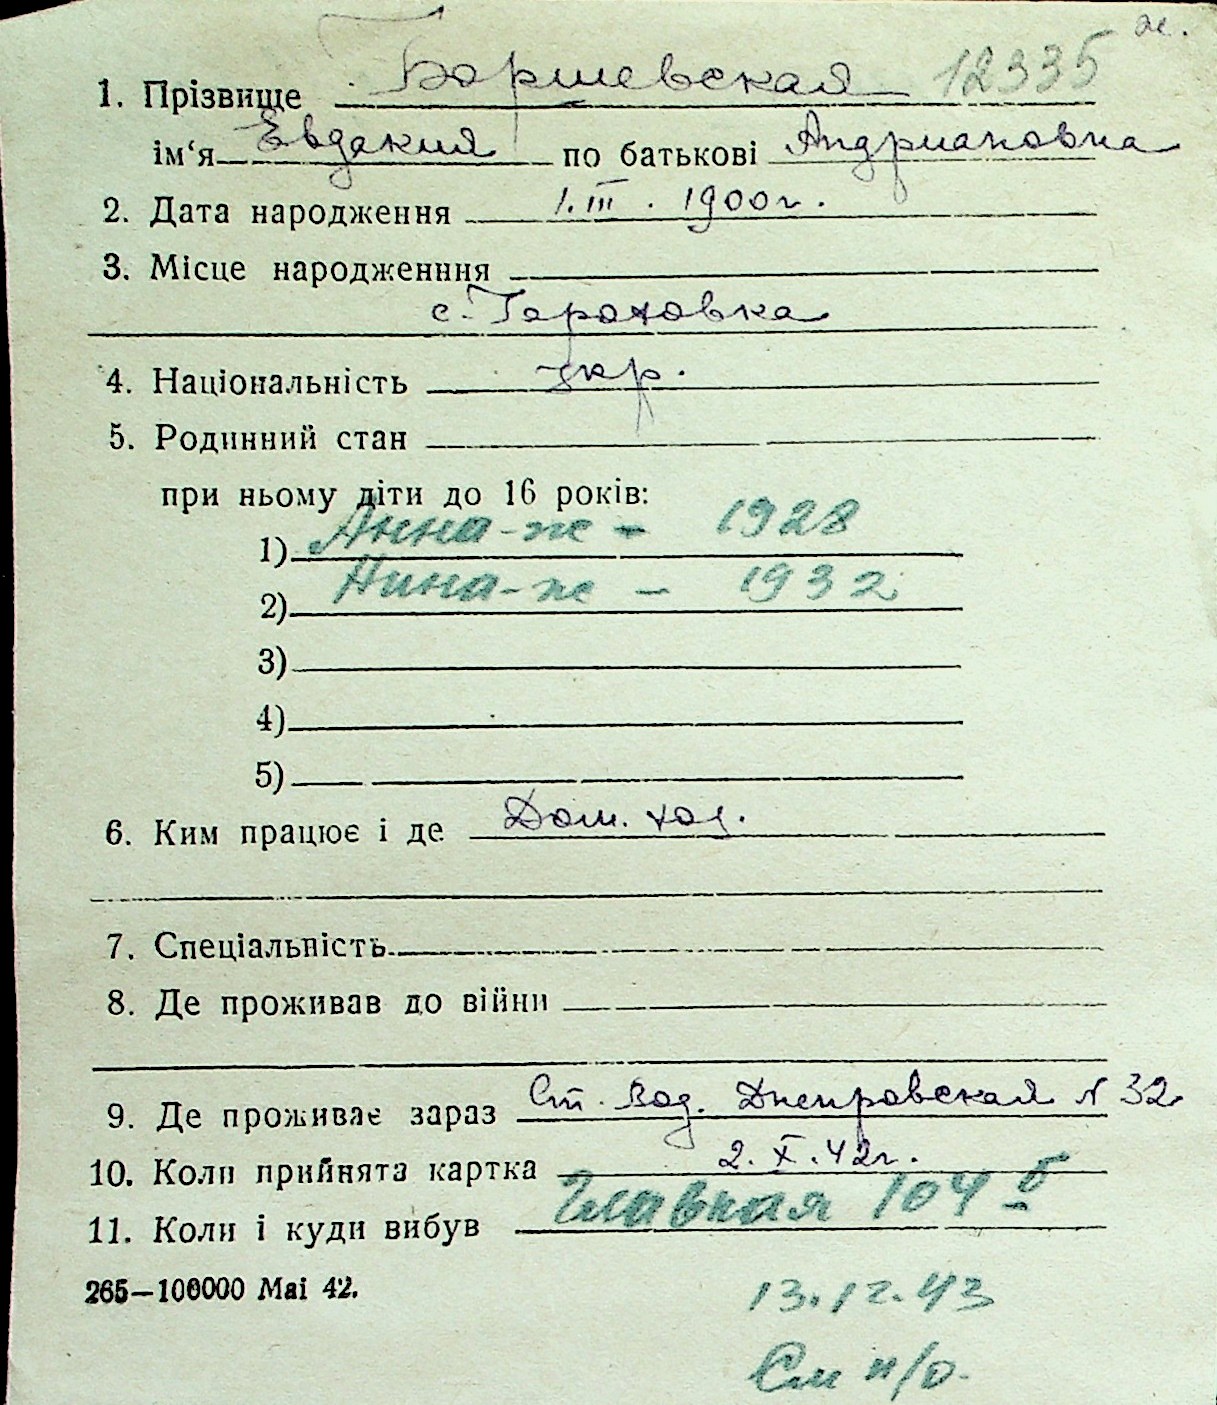 ж.
1. Прізвище Боршевская 12335
ім‘я Евдакия по батькові Андриановна
2. Дата народження 1. III. 1900 г.
3. Місце народженння
с. Гороховка
4. Національність укр.
5. Родинний стан
при ньому діти до 16 років:
1) Анна - ж - 1928
2) Нина - ж - 1932
3)
4)
5)
6. Ким працює і де Дом. хоз.
7. Спеціальність
8. Де проживав до війни
9. Де проживає зараз Ст. Вод. Днепровская N 32
10. Коли прийнята картка 2. X. 42 г.
11. Коли і куди вибув Главная 104 б
265—100000 Mai 42.
13.12.43
См н/о.